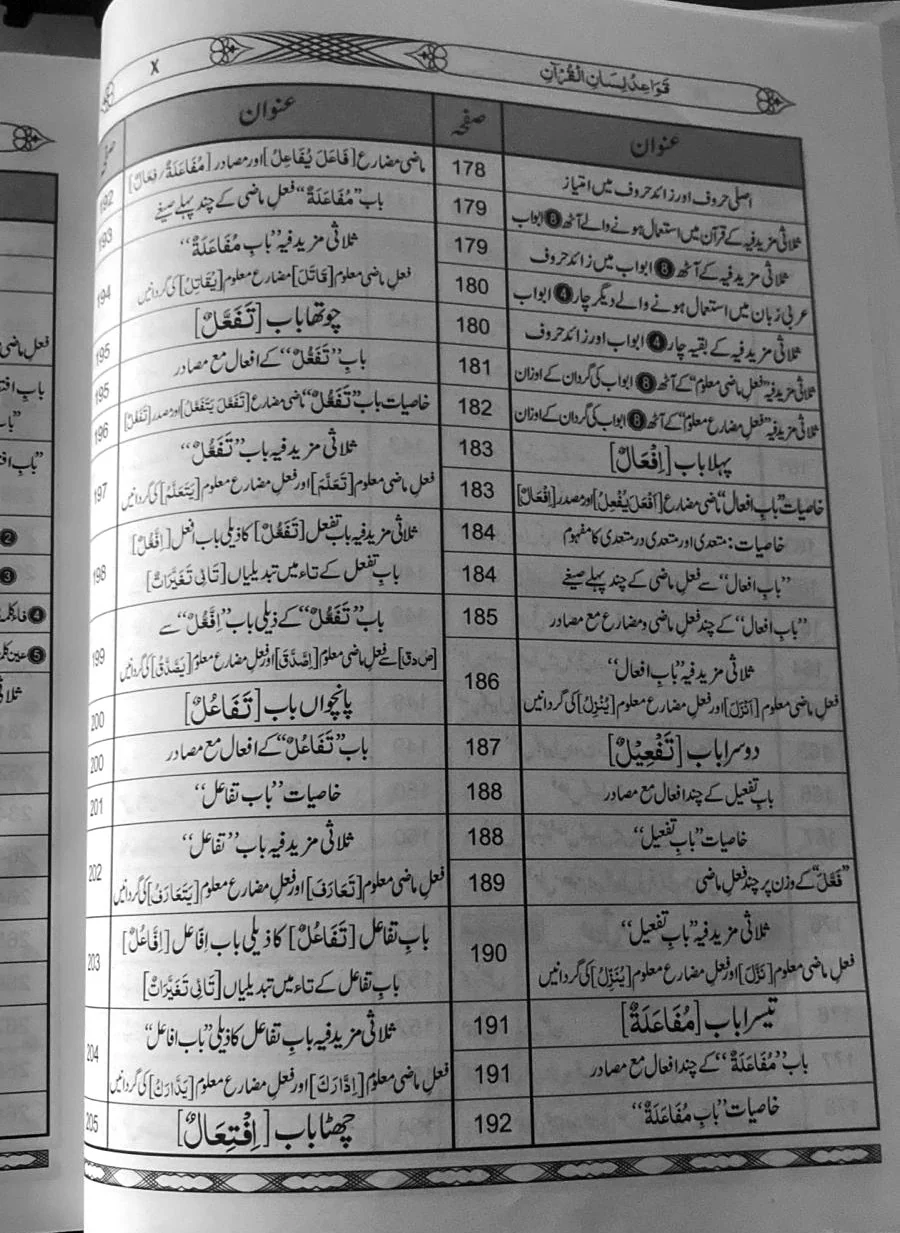 قَوَاعِدُ لِسَانِ الْقُرْآنِ
X
عنوان
صفحہ
اصلی حروف اور زائد حروف میں امتیاز
178
ثلاثی مزید فیہ کے قرآن میں استعمال ہونے والے آٹھ 8 ابواب
179
ثلاثی مزید فیہ کے آٹھ 8 ابواب میں زائد حروف
179
عربی زبان میں استعمال ہونے والے دیگر چار 4 ابواب
180
ثلاثی مزید فیہ کے بقیہ چار 4 ابواب اور زائد حروف
180
ثلاثی مزید فیہ ”فعلِ ماضی معلوم“ کے آٹھ 8 ابواب کی گردان کے اوزان
181
ثلاثی مزید فیہ ”فعل مضارع معلوم“ کے آٹھ 8 ابواب کی گردان کے اوزان
182
پہلا باب [اِفْعَالٌ]
183
خاصیات ”بابِ افعال“ ماضی مضارع [اَفْعَلَ يُفْعِلُ] اور مصدر [اِفْعَالٌ]
183
خاصیات : متعدی اور متعدی در متعدی کا مفہوم
184
”بابِ افعال“ سے فعلِ ماضی کے چند پہلے صیغے
184
”بابِ افعال“ کے چند فعلِ ماضی و مضارع مع مصادر
185
ثلاثی مزید فیہ ”بابِ افعال“
فعلِ ماضی معلوم [اَنْزَلَ] اور فعل مضارع معلوم [يُنْزِلُ] کی گردانیں
186
دوسرا باب [تَفْعِيْلٌ]
187
بابِ تفعیل کے چند افعال مع مصادر
188
خاصیات ”بابِ تفعیل“
188
”فَعَّلَ“ کے وزن پر چند فعلِ ماضی
189
ثلاثی مزید فیہ ”بابِ تفعیل“
فعلِ ماضی معلوم [نَزَّلَ] اور فعل مضارع معلوم [يُنَزِّلُ] کی گردانیں
190
تیسرا باب [مُفَاعَلَةٌ]
191
باب ”مُفَاعَلَةٌ“ کے چند افعال مع مصادر
191
خاصیات ”بابِ مُفَاعَلَةٌ“
192
عنوان
صفحہ
ماضی مضارع [فَاعَلَ يُفَاعِلُ] اور مصادر [مُفَاعَلَةٌ / فِعَالٌ]
192
باب ”مُفَاعَلَةٌ“ فعلِ ماضی کے چند پہلے صیغے
193
ثلاثی مزید فیہ ”بابِ مُفَاعَلَةٌ“
فعلِ ماضی معلوم [قَاتَلَ] مضارع معلوم [يُقَاتِلُ] کی گردانیں
194
چوتھا باب [تَفَعُّلٌ]
195
باب ”تَفَعُّلٌ“ کے افعال مع مصادر
195
خاصیات باب ”تَفَعُّلٌ“ ماضی مضارع [تَفَعَّلَ يَتَفَعَّلُ] اور مصدر [تَفَعُّلٌ]
196
ثلاثی مزید فیہ باب ”تَفَعُّلٌ“
فعلِ ماضی معلوم [تَعَلَّمَ] اور فعل مضارع معلوم [يَتَعَلَّمُ] کی گردانیں
197
ثلاثی مزید فیہ باب تفعل [تَفَعُّلٌ] کا ذیلی باب افعل [اِفَّعُّلٌ]
بابِ تفعل کے تاء میں تبدیلیاں [تَائی تَغَیُّرَاتٌ]
198
باب ”تَفَعُّلٌ“ کے ذیلی باب ”اِفَّعُّلٌ“ سے
[ص د ق] سے فعلِ ماضی معلوم [اِصَّدَّقَ] اور فعل مضارع معلوم [يَصَّدَّقُ] کی گردانیں
199
پانچواں باب [تَفَاعُلٌ]
200
باب ”تَفَاعُلٌ“ کے افعال مع مصادر
200
خاصیات ”باب تفاعل“
201
ثلاثی مزید فیہ باب ”تفاعل“
فعلِ ماضی معلوم [تَعَارَفَ] اور فعل مضارع معلوم [يَتَعَارَفُ] کی گردانیں
202
بابِ تفاعل [تَفَاعُلٌ] کا ذیلی باب اِفَّاعل [اِفَّاعُلٌ]
بابِ تفاعل کے تاء میں تبدیلیاں [تَائی تَغَیُّرَاتٌ]
203
ثلاثی مزید فیہ بابِ تفاعل کا ذیلی ”باب افاعل“
فعلِ ماضی معلوم [اِدَّارَكَ] اور فعل مضارع معلوم [يَدَّارَكُ] کی گردانیں
204
چھٹا باب [اِفْتِعَالٌ]
205